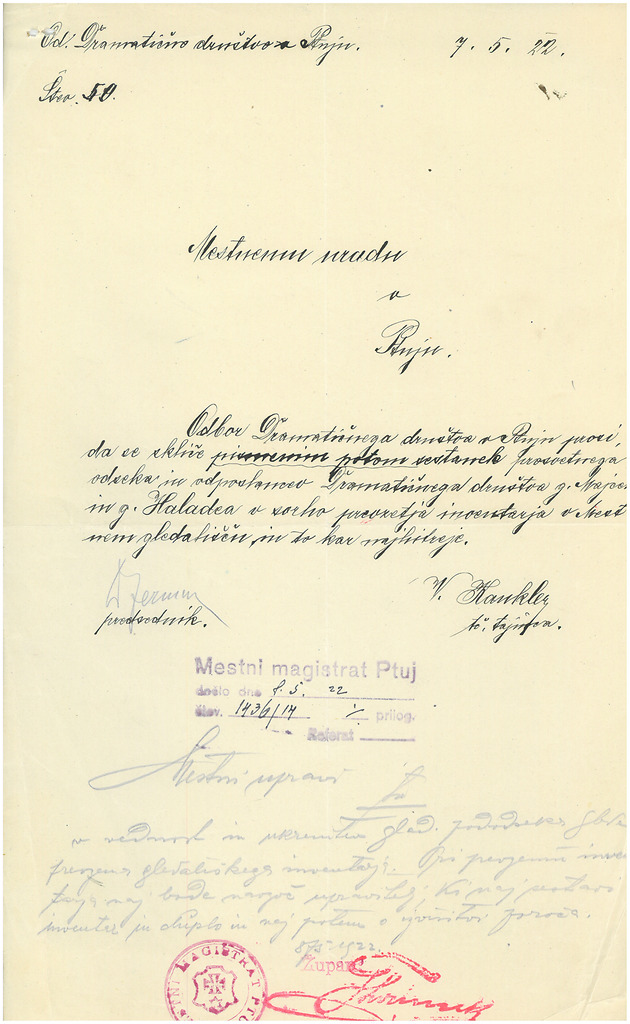 Od. Dramatično društvo v Ptuju. 7. 5. 22.
Štev. 50.
Mestnemu uradu
v
Ptuju.
Odbor Dramatičnega društva v Ptuju prosi,
da se skliče pismenim potom sestanek prosvetnega
odseka in odposlancev Dramatičnega društva g.
in g. v svrho prevzetja inventarja v Mest
nem gledališču, in to kar najhitreje.
predsednik. V. Kankler
tč. tajnica.
Mestni magistrat Ptuj
došlo dne 8. 5. 22
štev. 1436/14 prilog.
Referat
Mestni upravi
tu
v vednost in ukrenitev gled. pododseka
prevzema gledališkega inventarja. Pri prevzemu inven
tarja naj bode navzoč upravitelj, ki naj sestavi
inventar in duplo in naj potem o izvršitvi poroča.
8/5 1922.
Župan:
MESTNI MAGISTRAT PTUJ